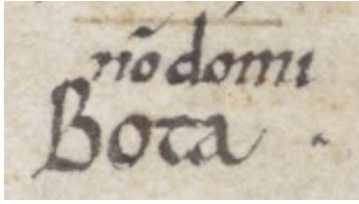 nõ domi
Bota .